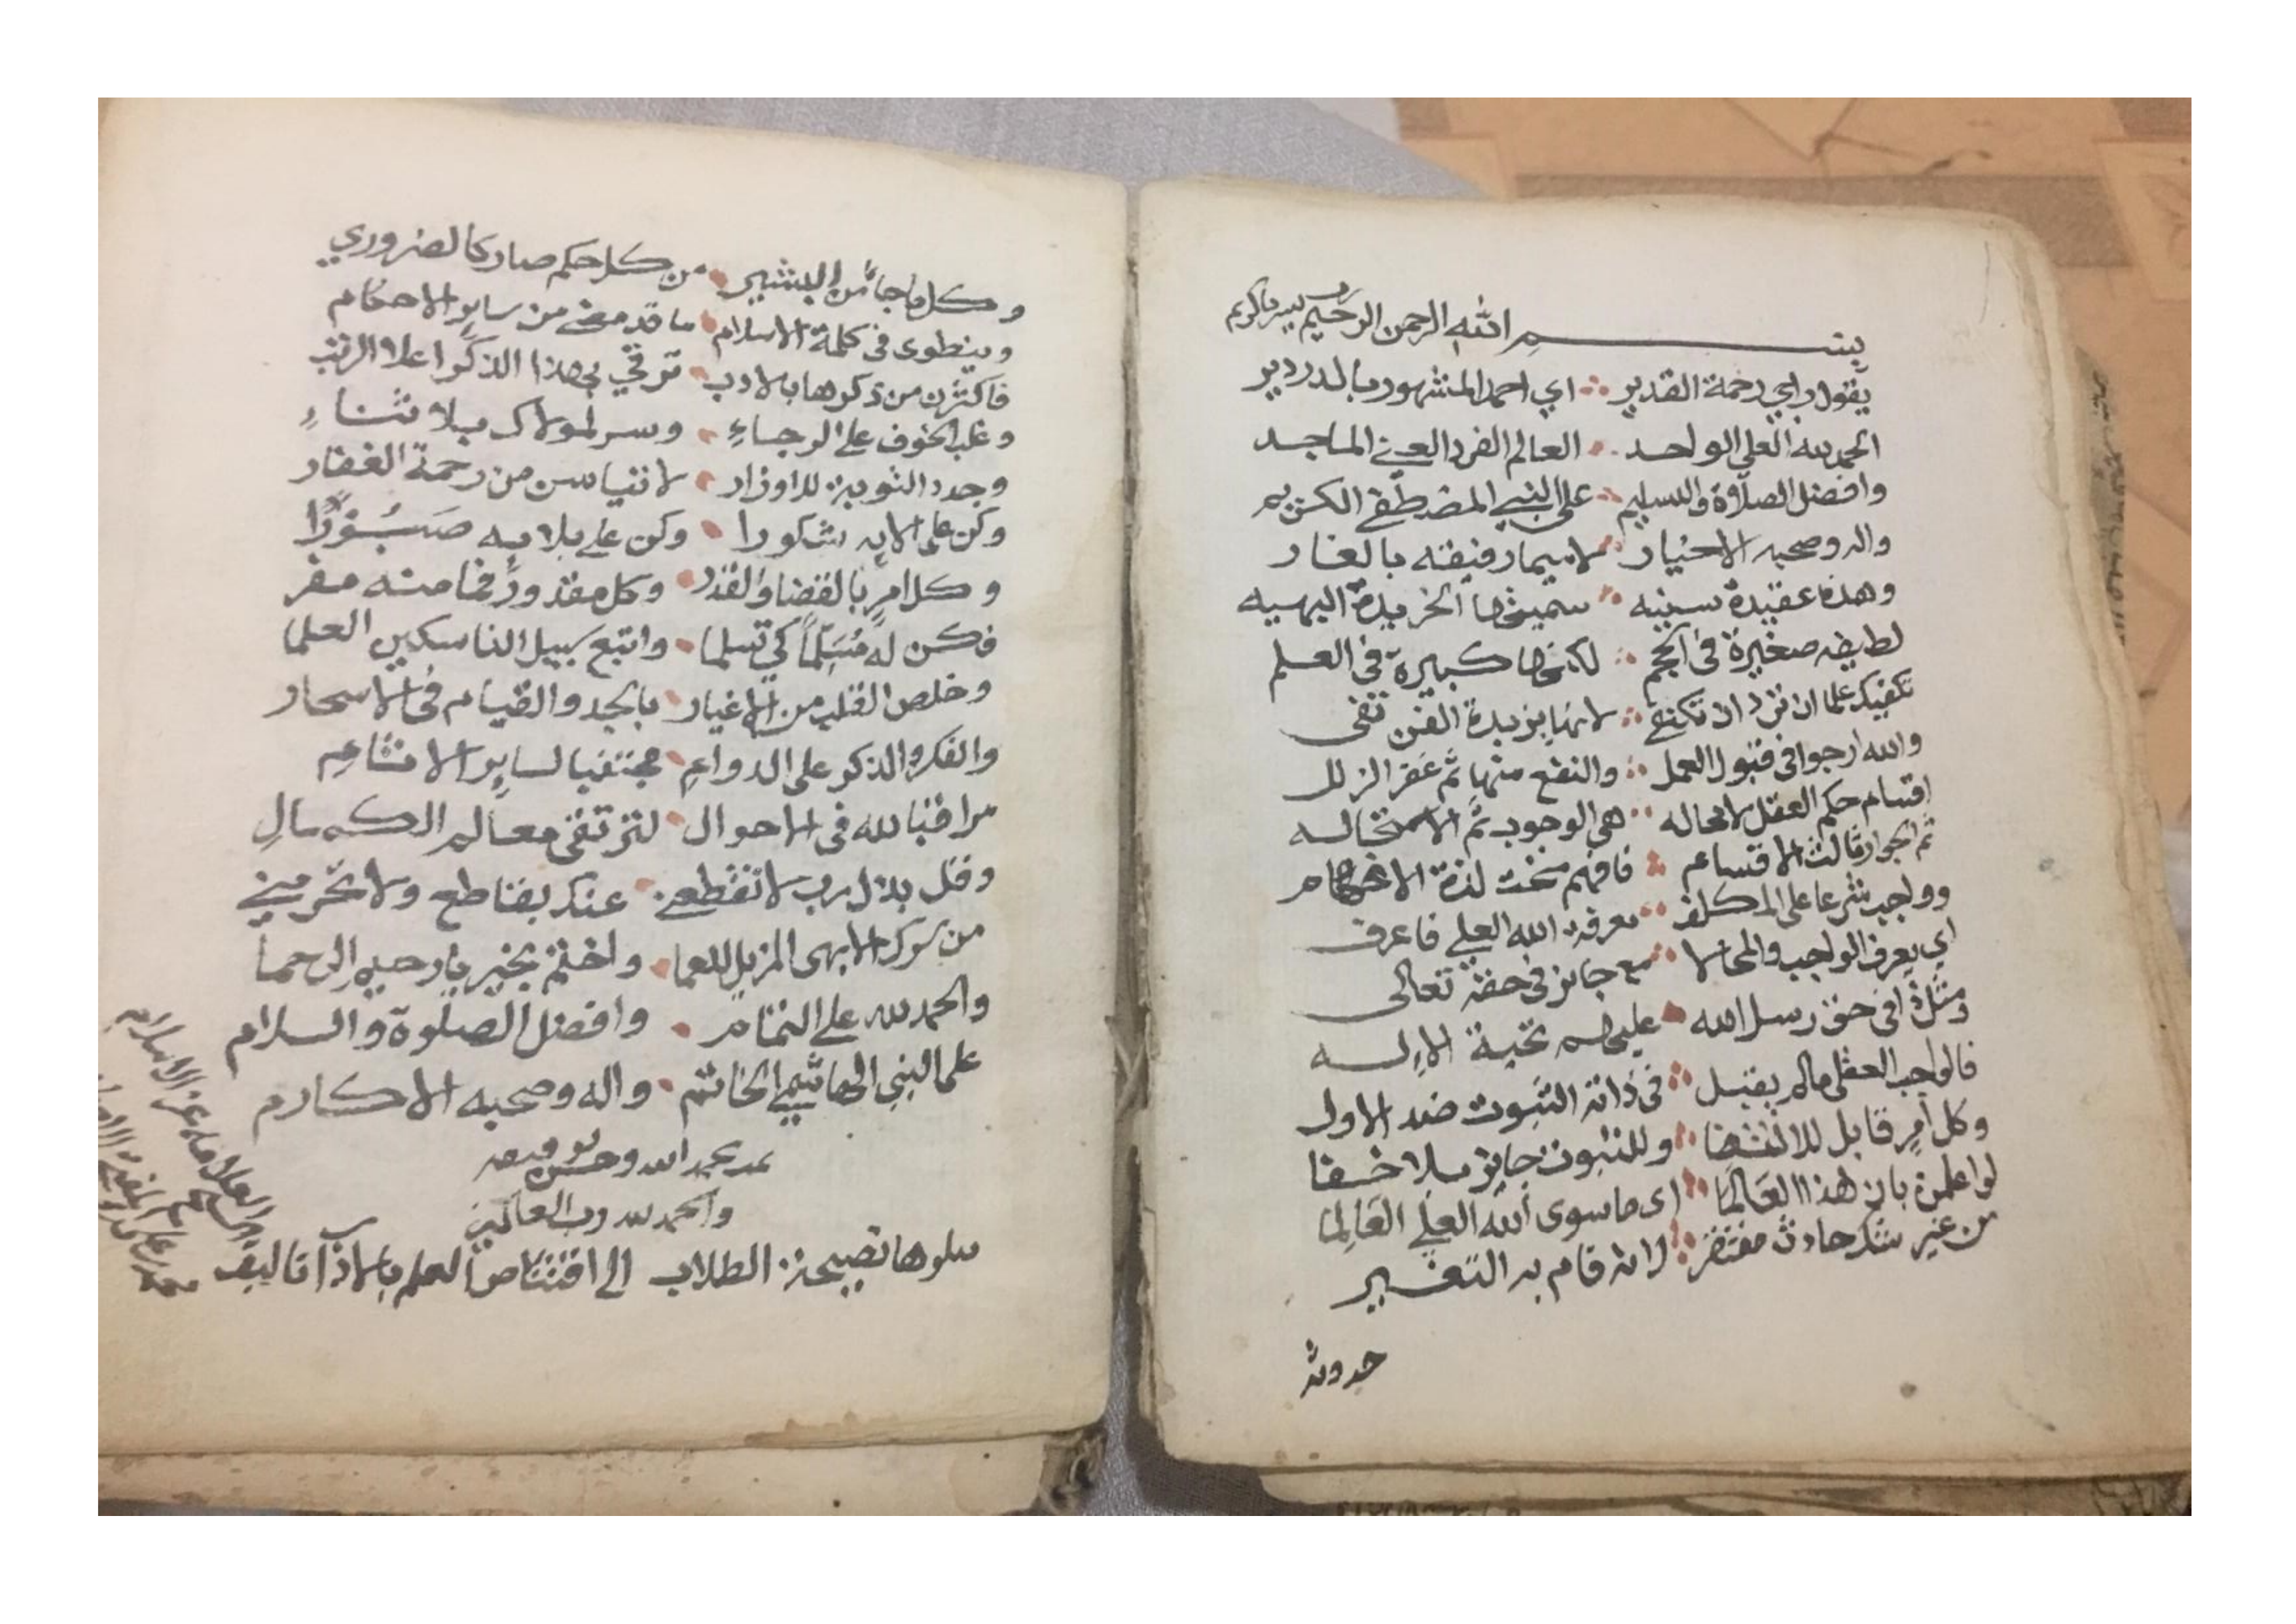 بسم الله الرحمن الرحيم رب يسر يا كريم
يقول راجي رحمة القدير اي احمد المشهور بالدردير
الحمد لله العلي الواحد العالم الفرد الغني الماجد
وافضل الصلاة والتسليم على النبي المصطفى الكريم
واله وصحبه الاخيار لا سيما رفيقه بالغار
وهذه عقيدة سنيه سميتها الخريدة البهيه
لطيفه صغيرة في الحجم لكنها كبيرة في العلم
تكفيك علما ان ترد ان تكتفي لانها بزبدة الفن تفى
والله ارجوا في قبول العمل والنفع منها ثم غفر الزلل
اقسام حكم العقل لا محاله هي الوجوب ثم الاستحاله
ثم الجواز ثالث الاقسام فافهم منحت لذة الافهام
وواجب شرعا على المكلف معرفة الله العلي فاعرف
اي يعرف الواجب والمحالا مع جائز في حقه تعالى
ومثل ذا في حق رسل الله عليهم تحية الاله
فالواجب العقلي مالم يقبل في ذاته الثبوت ضد الاول
وكل امر قابل للانتفا وللثبوت جايز بلا خفا
لواعلمن بان هذا العالما اى ما سوى الله العلي العالما
من غير شك حادث مفتقر لانه قام به التغير
حدوثه
وكل ما جاء من البشير من كل حكم صار كالضروري
وينطوى في كلمة الاسلام ما قد مضى من ساير الاحكام
فاكثرن من ذكرها بالادب ترقى بهذا الذكر اعلا الرتب
وغلب الخوف على الرجاء وسر لمولاك بلا ثناء
وجدد التوبة للاوزار لا تياسن من رحمة الغفار
وكن على الايه شكورا وكن على بلايه صبورا
وكل امر بالقضا والقدر وكل مقدور فما منه مفر
فكن له مسلما كي تسلما واتبع سبيل الناسكين العلما
وخلص القلب من الاغيار بالجد والقيام في الاسحار
والفكر والذكر على الدوام مجتنبا لساير الاثام
مراقبا لله في الاحوال لترتقى معالم الكمال
وقل بذل رب لا تقطعني عنك بقاطع ولا تحرمني
من سرك الابهى المزيل للعما واختم بخير يا رحيم الرحما
والحمد لله على التمام وافضل الصلوة والسلام
على النبي الهاشمي الخاتم واله وصحبه الاكارم
تمت بحمد الله وحسن توفيقه
والحمد لله رب العالمين
يتلوها نصيحة الطلاب الى اقتناص العلم بالاداب تاليف